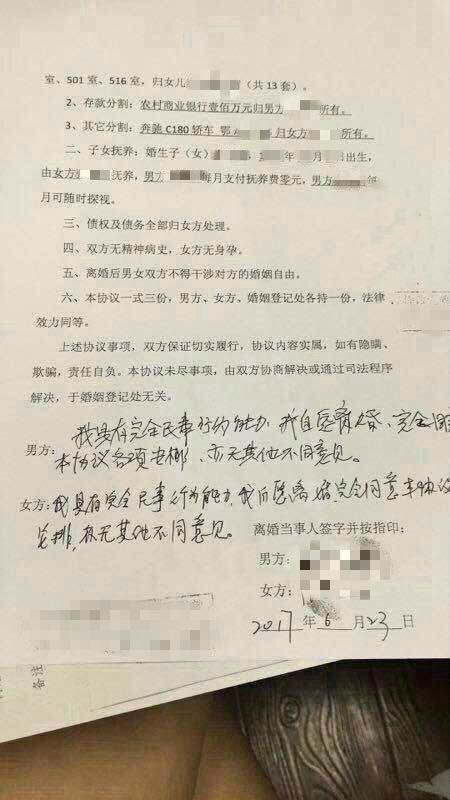 室、501 室、516 室,归女儿（共 13 套）。
2、存款分割：农村商业银行壹佰万元归男方所有。
3、其它分割：奔驰 C180 轿车 鄂归女方所有。
二、子女抚养：婚生子（女）年月出生，
由女方抚养，男方每月支付抚养费零元，男方每
月可随时探视。
三、债权及债务全部归女方处理。
四、双方无精神病史，女方无身孕。
五、离婚后男女双方不得干涉对方的婚姻自由。
六、本协议一式三份，男方、女方、婚姻登记处各持一份，法律
效力同等。
上述协议事项，双方保证切实履行，协议内容实属，如有隐瞒、
欺骗，责任自负。本协议未尽事项，由双方协商解决或通过司法程序
解决，于婚姻登记处无关。
我具有完全民事行为能力，我自愿离婚，完全同
男方：本协议各项安排，亦无其他不同意见。
女方：我具有完全民事行为能力，我自愿离婚完全同意本协议
安排，亦无其他不同意见。
离婚当事人签字并按指印：
男方：
女方：
2017 年 6 月 23 日
备注